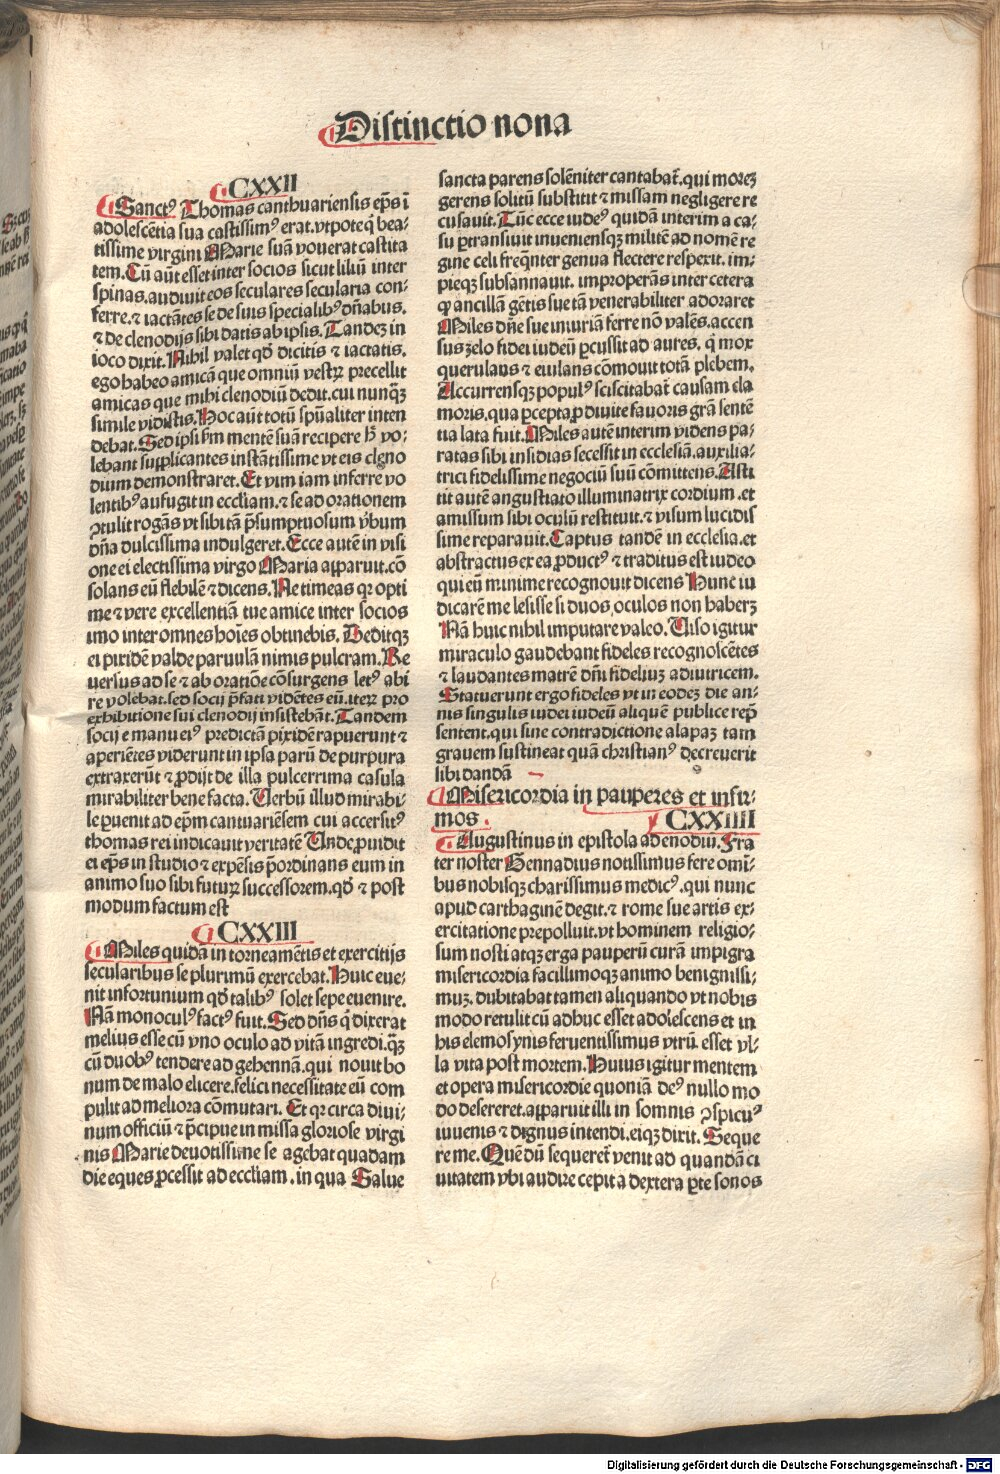 Distinctio nona
CXXII
Sanctꝰ Thomas canthuariensis ep̄s ī
adolescētia sua castissimꝰ erat. vtpote q̄ bea-
tissime virgini Marie suā vouerat castita
tem. Cū aūt esset inter socios sicut liliū inter
spinas. audiuit eos seculares secularia con-
ferre. ⁊ iactātes se de suis specialibꝰ dn̄abus.
⁊ de clenodijs sibi datis ab ipsis. Tandeꝫ in
ioco dixit. Nihil valet qd̄ dicitis ⁊ iactatis.
ego habeo amicā que omniū vestꝝ precellit
amicas que mihi clenodiū dedit. cui nunq̄ꝫ
simile vidistis. Hoc aūt totū spūaliter inten
debat. Sed ipsi s̄m mentē suā recipere h̄ vo-
lebant supplicantes instātissime vt eis cleno
dium demonstraret. Et vim iam inferre vo
lentibꝰ aufugit in eccl̄iam. ⁊ se ad orationem
ꝯtulit rogās vt sibi tā p̄sumptuosum v̄bum
dn̄a dulcissima indulgeret. Ecce autē in visi
one ei electissima virgo Maria apparuit. cō
solans eū flebilē ⁊ dicens. Ne timeas qꝛ opti
me ⁊ vere excellentiā tue amice inter socios
imo inter omnes hoīes obtinebis. Deditqꝫ
ei pixidē valde paruulā nimis pulcram. Re
uersus ad se ⁊ ab oratiōe cōsurgens letꝰ abi
re volebat. sed socij p̄fati vidētes eū. iteꝝ pro
exhibitione sui clenodij insistebāt. Tandem
socij e manu eiꝰ predictā pixidē rapuerunt ⁊
aperiētes viderunt in ipsa parū de purpura
extraxerūt ⁊ ꝓdijt de illa pulcerrima casula
mirabiliter bene facta. Uerbū illud mirabi-
le ꝑuenit ad ep̄m cantuariēsem cui accersitꝰ
thomas rei indicauit veritatē Unde ꝓuidit
ei ep̄s in studio ⁊ expēsis p̄ordinans eum in
animo suo sibi futuꝝ successorem. qd̄ ⁊ post
modum factum est
CXXIII
Miles quidā in torneamētis et exercitijs
secularibus se plurimū exercebat. Huic eue-
nit infortunium qd̄ talibꝰ solet sepe euenire.
Nā monoculꝰ factꝰ fuit. Sed dn̄s q̄ dixerat
melius esse cū vno oculo ad vitā ingredi. q̄ꝫ
cū duobꝰ tendere ad gehennā. qui nouit bo
num de malo elicere. felici necessitate eū com
pulit ad meliora cōmutari. Et qꝛ circa diui-
num officiū ⁊ p̄cipue in missa gloriose virgi
nis Marie deuotissime se agebat quadam
die eques ꝓcessit ad eccl̄iam. in qua Salue
sancta parens solēniter cantabat̄. qui moreꝫ
gerens solitū substitit ⁊ missam negligere re
cusauit. Tūc ecce iudeꝰ quidā interim a ca-
su ꝑtransiuit inueniensqꝫ militē ad nomē re
gine celi freq̄nter genua flectere respexit. im-
pieqꝫ subsannauit. improperās inter cetera
qꝙ ancillā gētis sue tā venerabiliter adoraret
Miles dn̄e sue iniuriā ferre nō valēs. accen
sus zelo fidei iudeū ꝑcussit ad aures. q̄ mox
querulans ⁊ eiulans cōmouit totā plebem.
Accurrensqꝫ populꝰ sciscitabat̄ causam cla
moris. qua ꝑcepta. ꝓ diuite fauoris grā sentē
tia lata fuit. Miles autē interim videns pa-
ratas sibi insidias secessit in ecclesiā. auxilia-
trici fidelissime negociū suū cōmittens. Asti
tit autē angustiato illuminatrix cordium. et
amissum sibi oculū restituit. ⁊ visum lucidis
sime reparauit. Captus tandē in ecclesia. et
abstractus ex ea ꝓductꝰ ⁊ traditus est iudeo
qui eū minime recognouit dicens Hunc iu
dicarē me lesisse si duos oculos non habereꝫ
Nā huic nihil imputare valeo. Uiso igitur
miraculo gaudebant fideles recognoscētes
⁊ laudantes matrē dn̄i fideliuꝫ adiutricem.
Statuerunt ergo fideles vt in eodeꝫ die an-
nis singulis iudei iudeū aliquē publice rep̄
sentent. qui sine contradictione alapaꝫ tam
grauem sustineat quā christianꝰ decreuerit
sibi dandā
Misericordia in pauperes et infir-
mos. CXXIIII
Augustinus in epistola ad enodiū. Fra
ter noster Gennadius notissimus fere omī-
bus nobisqꝫ charissimus medicꝰ. qui nunc
apud carthaginē degit. ⁊ rome sue artis ex-
ercitatione prepolluit. vt hominem religio-
sum nosti atqꝫ erga pauperū curā impigra
misericordia facillimoqꝫ animo benignissi-
muꝫ. dubitabat tamen aliquando vt nobis
modo retulit cū adhuc esset adolescens et in
his elemosynis feruentissimus vtrū esset vl-
la vita post mortem. Huius igitur mentem
et opera misericordie quoniā deꝰ nullo mo
do desereret. apparuit illi in somnis ꝯspicuꝰ
iuuenis ⁊ dignus intendi. eiqꝫ dixit. Seque
re me. Quē dū sequeret̄ venit ad quandā ci
uitatem vbi audire cepit a dextera ꝑte sonos
Digitalisierung gefördert durch die Deutsche Forschungsgemeinschaft - DFG